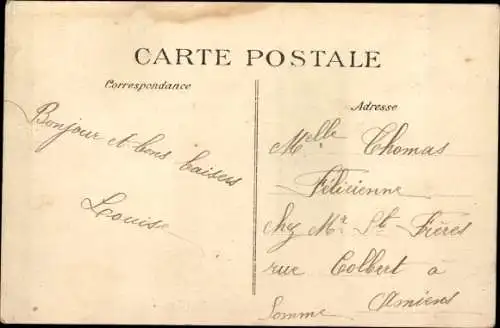 CARTE POSTALE
Correspondance
Adresse
Bonjour et bons baisers
Louise
Melle Thomas
Félicienne
chez Mr. St Frères
rue Colbert à
Amiens
Somme